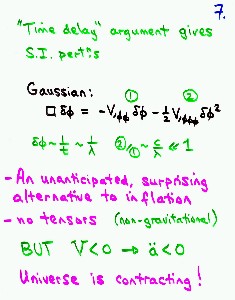 7.
"Time delay" argument gives
S.I. pert:s
Gaussian: ① ②
□ δφ = -V,φφ δφ - ½ V,φφφ δφ²
δφ ~ 1/t ~ 1/λ ②/① ~ c/λ ≪ 1
- An unanticipated, surprising
alternative to inflation
- no tensors (non-gravitational)
BUT V<0 → ä<0
Universe is contracting!